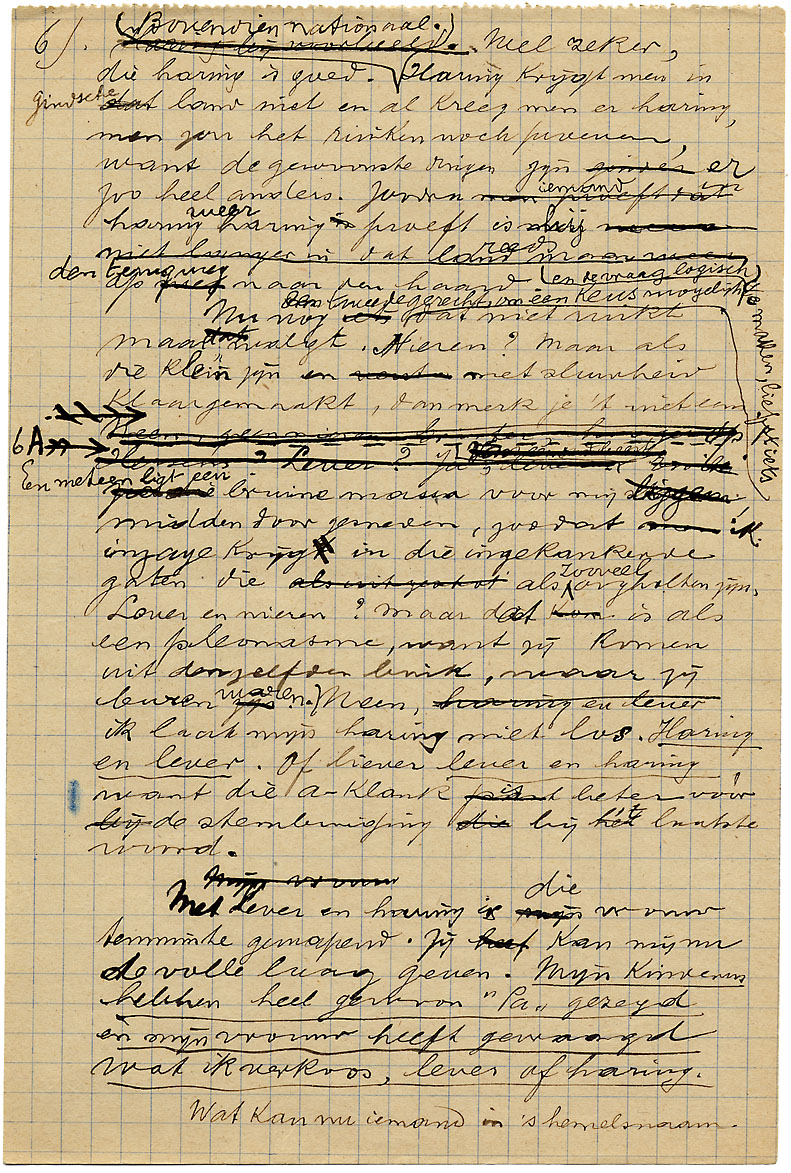 (Bovendien nationaal.)
6). Wel zeker,
die haring is goed. Haring krijgt men in
gindsche land niet en al kreeg men er haring,
men zou het ruiken noch proeven,
want de gewoonste dingen zijn er
zoo heel anders. Zoodra iemand
haring weer haring proeft is hij
reeds
op den terugweg naar den haard (en de vraag logisch
een tweede gerecht, om een keus mogelijk
te maken, liefst iets
Nu nog wat niet ruikt
maar walgt. Nieren? Maar als
die klein zijn en met sluwheid
klaargemaakt, dan merk je 't niet eens
6A
Neen,
Lever?
En meteen ligt een
bruine massa voor mij
midden door gesneden, zoodat ik
inzage krijg in die ingekankerde
gaten die als zooveel orgholten zijn.
Lever en nieren? Maar dat is als
een pleonasme, want zij komen
uit denzelfden buik, waar zij
buren waren.) Neen,
ik laat mijn haring niet los. Haring
en lever. Of liever lever en haring
want die a-klank beter vóór
de stembuiging bij het laatste
woord.
Met lever en haring is die vrouw
tenminste gewapend. Zij kan mij nu
de volle laag geven. Mijn kinderen
hebben heel gewoon "Pa" gezegd
en mijn vrouw heeft gevraagd
wat ik verkoos, lever of haring.
Wat kan nu iemand in 's hemelsnaam